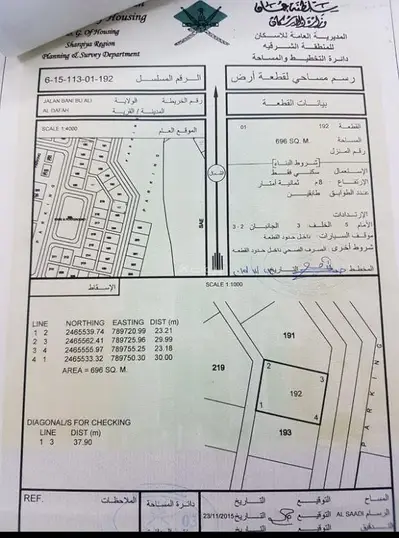 سلطنة عمان
وزارة الإسكان
Housing
D. G. Of Housing
Sharqiya Region
Planning & Survey Department
المديرية العامة للاسكان
للمنطقة الشرقيه
دائرة التخطيط والمساحة
6-15-113-01-192
الرقم المسلسل
رسم مساحي لقطعة أرض
JALAN BANI BU ALI
الولاية
رقم الخريطة
AL GAFAH
المدينة / القرية
بيانات القطعة
SCALE 1:4000
الموقع العام
القطعة 192 01
المساحة 696 SQ. M.
رقم المنزل
شروط البناء
الاستعمال سكني فقط
الارتفاع 8م ثمانية أمتار
عدد الطوابق طابقين
الإرتدادات
الأمام 5 الخلف 3 الجانبان 3 - 2
موقف السيارات داخل حدود القطعة
شروط أخرى الصرف الصحي داخل حدود القطعه
المخطط التاريخ
الشمال
SAE
PARKING
الإسقاط
SCALE 1:1000
LINE NORTHING EASTING DIST (m)
1 2 2465539.74 789720.99 23.21
2 3 2465562.41 789725.96 29.99
3 4 2465555.97 789755.25 23.18
4 1 2465533.32 789750.30 30.00
AREA = 696 SQ. M.
DIAGONAL/S FOR CHECKING
LINE DIST (m)
1 3 37.90
191
219
2
3
192
1
4
193
PARKING
REF.
الملاحظات
دائرة المساحة
التاريخ
التوقيع
المساح
23/11/2015
التاريخ
التوقيع
AL SAADI
الرسام
التاريخ
التوقيع
التدقيق